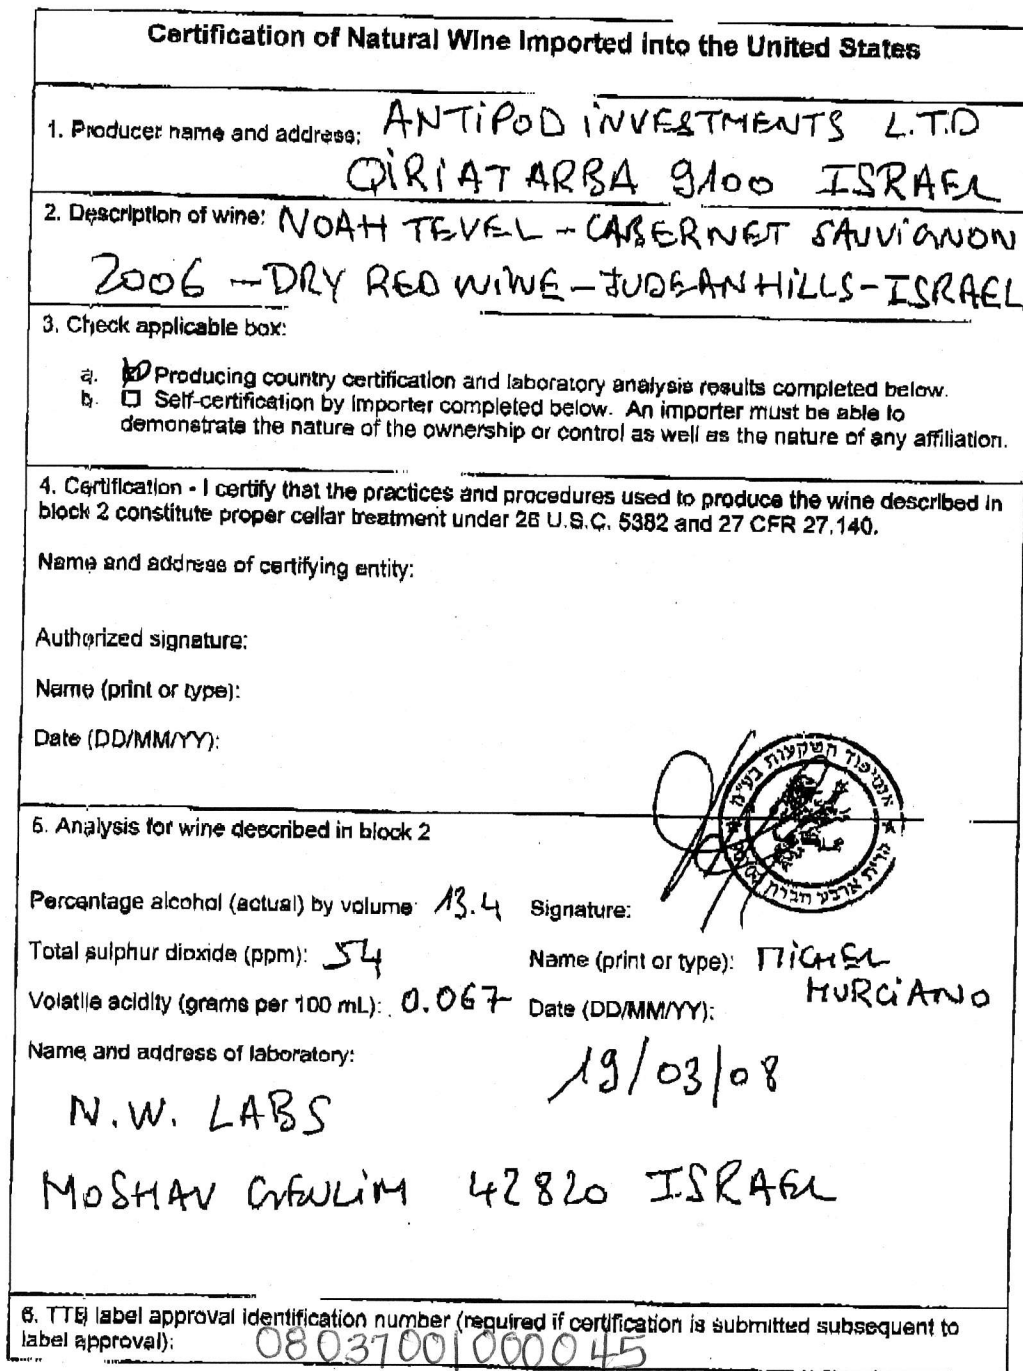 Certification of Natural Wine Imported into the United States
1. Producer name and address: ANTIPOD INVESTMENTS L.T.D
QIRIAT ARBA 9100 ISRAEL
2. Description of wine: NOAH TEVEL - CABERNET SAUVIGNON
2006 - DRY RED WINE - JUDEAN HILLS - ISRAEL
3. Check applicable box:
a. Producing country certification and laboratory analysis results completed below.
b. ☐ Self-certification by importer completed below. An importer must be able to
demonstrate the nature of the ownership or control as well as the nature of any affiliation.
4. Certification - I certify that the practices and procedures used to produce the wine described in
block 2 constitute proper cellar treatment under 26 U.S.C. 5382 and 27 CFR 27.140.
Name and address of certifying entity:
Authorized signature:
Name (print or type):
Date (DD/MM/YY):
אנטיפוד השקעות בע"מ
קרית ארבע חברת
5. Analysis for wine described in block 2
Percentage alcohol (actual) by volume: 13.4 Signature:
Total sulphur dioxide (ppm): 54 Name (print or type): MICHEL
MURCIANO
Volatile acidity (grams per 100 mL): 0.067 Date (DD/MM/YY):
Name and address of laboratory:
19/03/08
N.W. LABS
MOSHAV GEULIM 42820 ISRAEL
6. TTB label approval identification number (required if certification is submitted subsequent to
label approval): 08037001000045